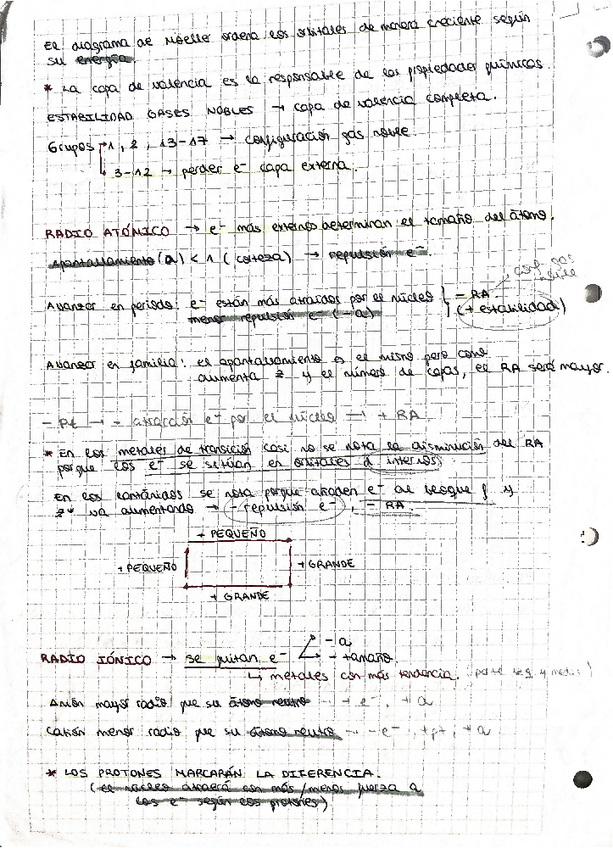 El diagrama de Moeller ordena los orbitales de manera creciente según
su energía
* La capa de valencia es la responsable de las propiedades químicas.
ESTABILIDAD GASES NOBLES → capa de valencia completa.
Grupos 1, 2, 13-17 → configuración gas noble
3-12 → perder e⁻ capa externa.
RADIO ATÓMICO → e⁻ más externos determinan el tamaño del átomo.
Apantallamiento (a) < 1 (corteza) → repulsión e⁻.
conf. gas
noble
Avanzar en periodo: e⁻ están más atraídos por el núcleo } - RA
menor repulsión e⁻ (-a) (+ estabilidad)
Avanzar en familia: el apantallamiento es el mismo pero como
aumenta z y el número de capas, el RA será mayor.
→ - atracción e⁻ por el núcleo → + RA
* En los metales de transición casi no se nota la disminución del RA
porque los e⁻ se sitúan en orbitales d internos.
En los lantánidos se nota porque añaden e⁻ al bloque f y
z* va aumentando → - repulsión e⁻, - RA.
+ PEQUEÑO
+ PEQUEÑO + GRANDE
+ GRANDE
RADIO IÓNICO → se quitan e⁻ - a
- tamaño.
↳ metales con más tendencia.
Anión mayor radio que su átomo neutro ... + e⁻, + a
Catión menor radio que su átomo neutro ... - e⁻, +p+, + a
* LOS PROTONES MARCARÁN LA DIFERENCIA.
(el núcleo atraerá con más/menos fuerza a
los e⁻ según los protones)